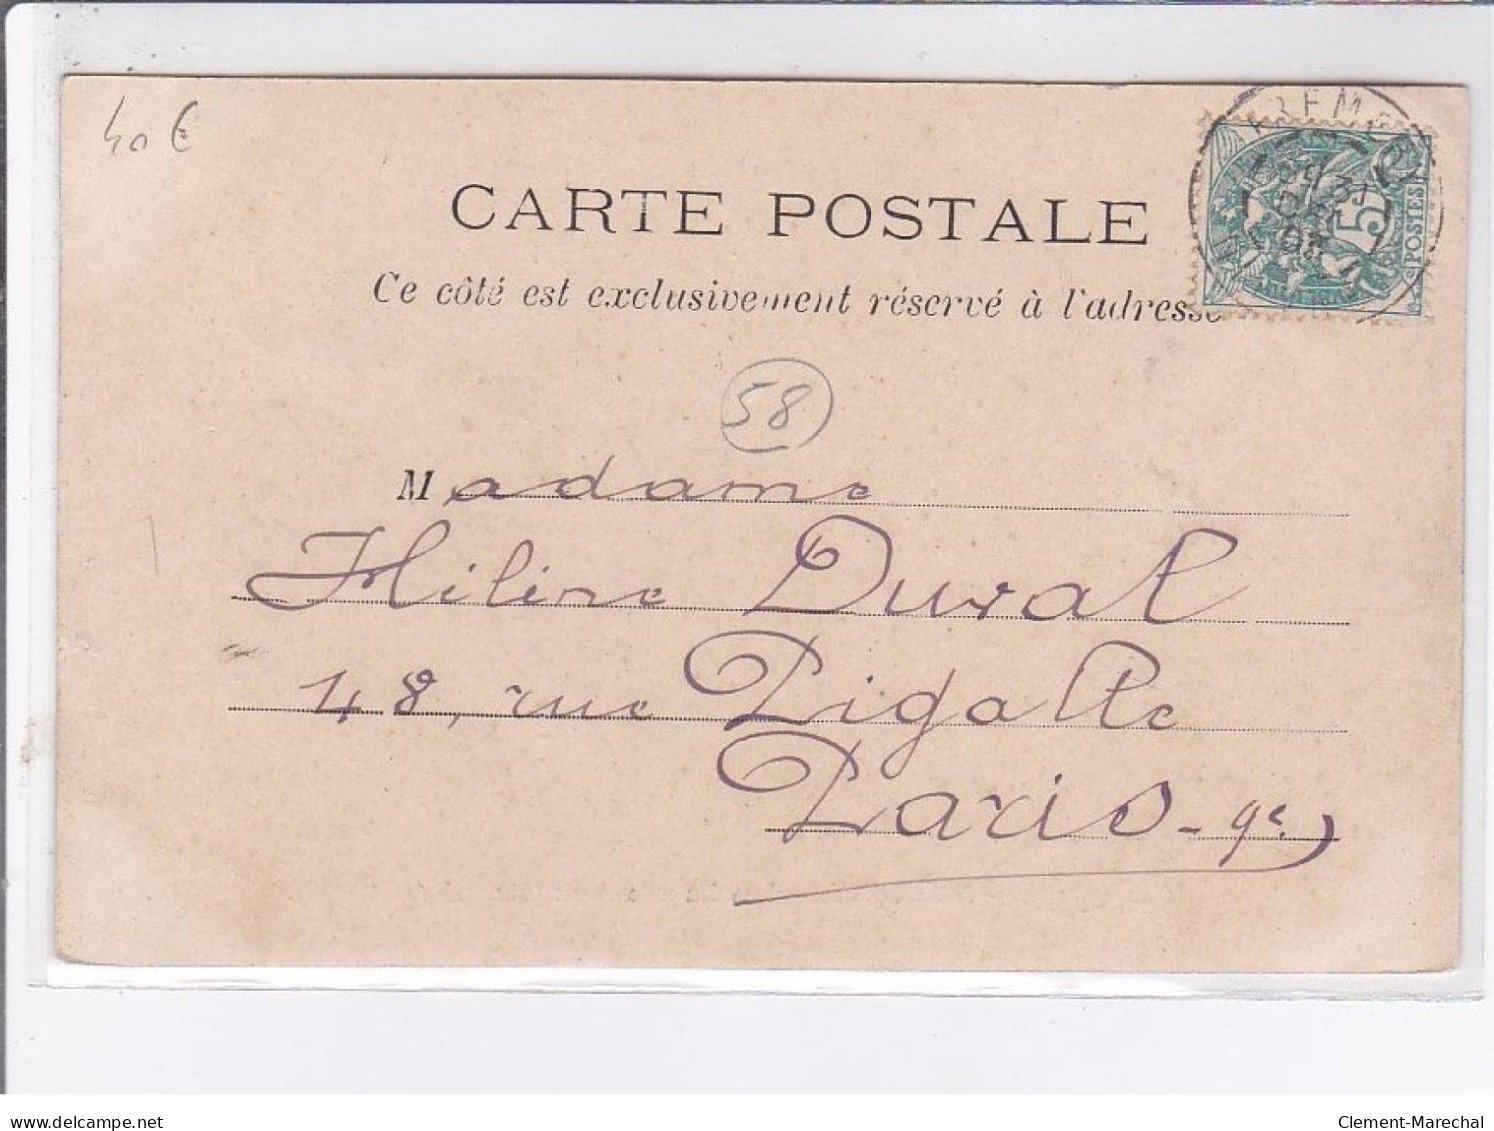 40 €
CARTE POSTALE
Ce côté est exclusivement réservé à l'adresse
5
POSTES
58
Madame
Hélène Duval
48, rue Pigalle
Paris - 9e.
www.delcampe.net
Clement-Marechal